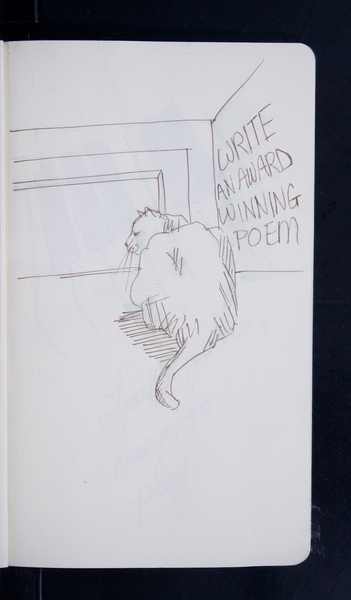 WRITE
AN AWARD
WINNING
POEM